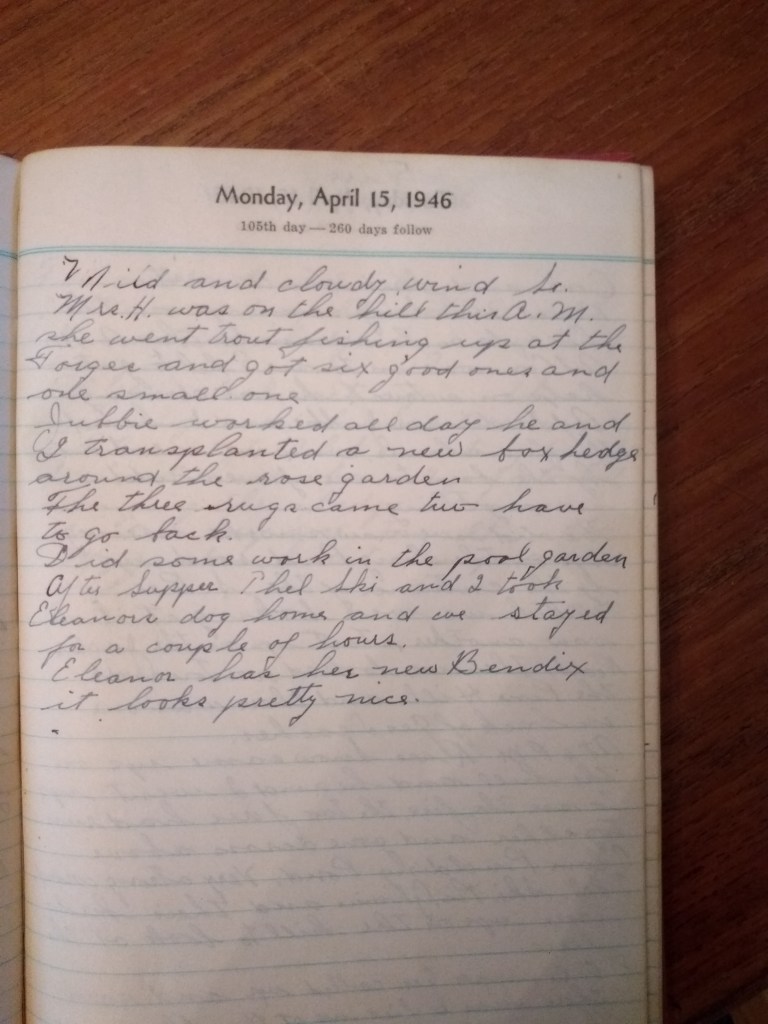 Monday, April 15, 1946
105th day — 260 days follow
Mild and cloudy wind Se.
Mrs. H. was on the hill this A. M.
she went trout fishing up at the
Forges and got six good ones and
one small one
Jubbie worked all day he and
I transplanted a new box hedge
around the rose garden
The three rugs came two have
to go back.
Did some work in the pool garden
After Supper Phel Ski and I took
Eleanors dog home and we stayed
for a couple of hours.
Eleanor has her new Bendix
it looks pretty nice.